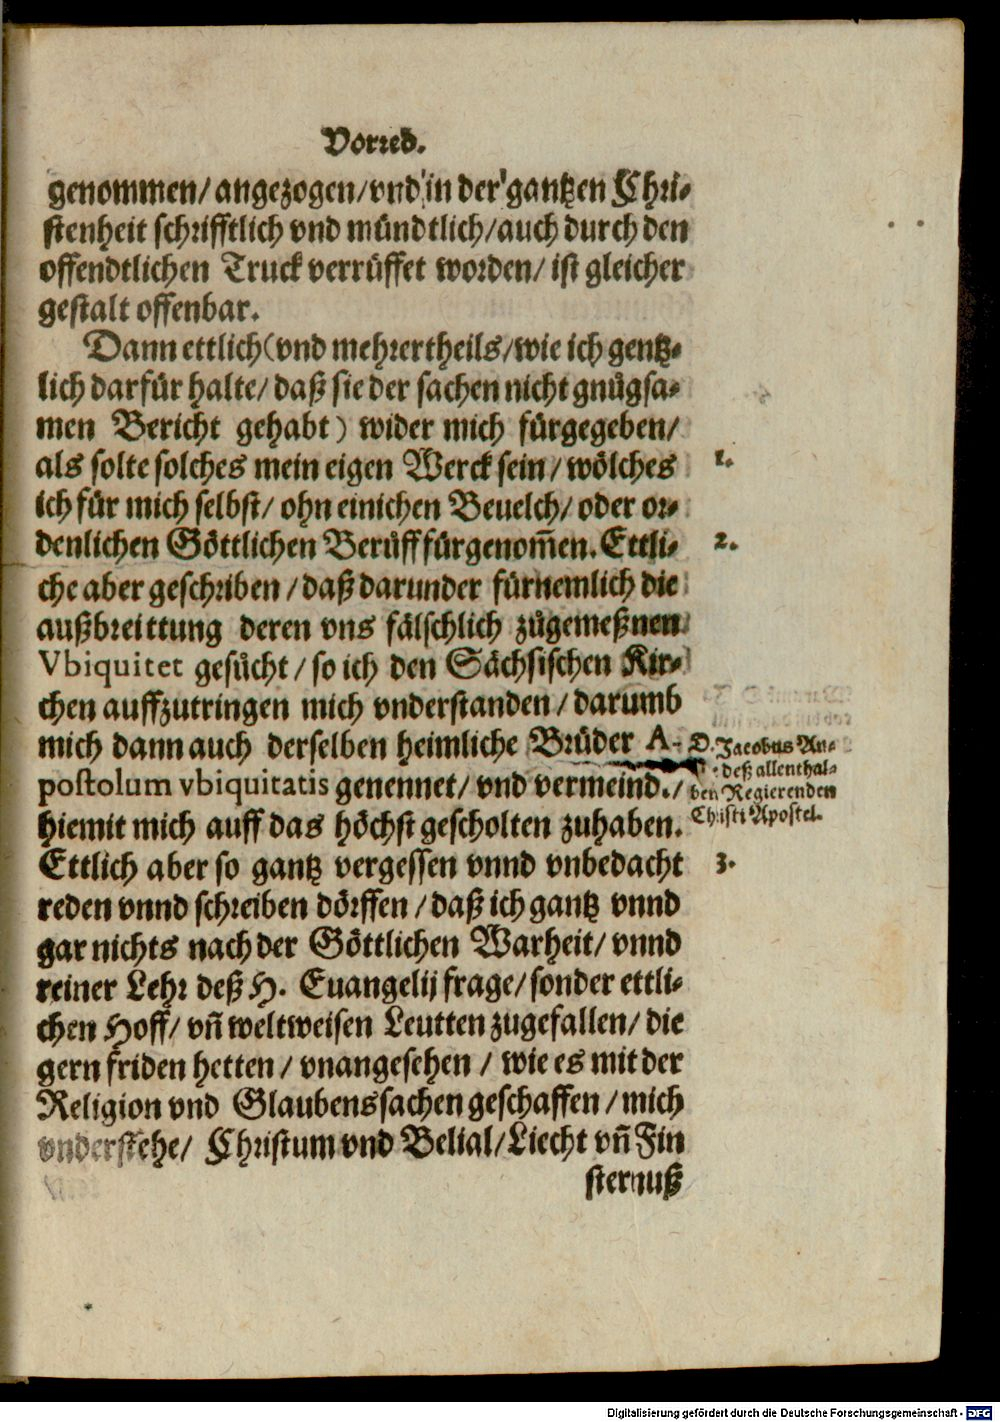 Vorred.
genommen/ angezogen/ vnd in der gantzen Chri-
stenheit schrifftlich vnd mündtlich/ auch durch den
offendtlichen Truck verrüffet worden/ ist gleicher
gestalt offenbar.
Dann ettlich (vnd mehrertheils/ wie ich gentz-
lich darfür halte/ daß sie der sachen nicht gnůgsa-
men Bericht gehabt) wider mich fürgegeben/
als solte solches mein eigen Werck sein/ wölches
1.
ich für mich selbst/ ohn einichen Beuelch/ oder or-
denlichen Göttlichen Berůff fürgenom̃en. Ettli-
2.
che aber geschriben/ daß darunder fürnemlich die
außbreittung deren vns fälschlich zůgemeßnen
Vbiquitet gesůcht/ so ich den Sächsischen Kir-
chen auffzutringen mich vnderstanden/ darumb
mich dann auch derselben heimliche Brüder A-
postolum vbiquitatis genennet/ vnd vermeind./
D. Jacobus An-
deß allenthal-
ben Regierenden
Christi Apostel.
hiemit mich auff das höchst gescholten zuhaben.
Ettlich aber so gantz vergessen vnnd vnbedacht
3.
reden vnnd schreiben dörffen/ daß ich gantz vnnd
gar nichts nach der Göttlichen Warheit/ vnnd
reiner Lehr deß H. Euangelij frage/ sonder ettli-
chen Hoff/ vñ weltweisen Leutten zugefallen/ die
gern friden hetten/ vnangesehen/ wie es mit der
Religion vnd Glaubenssachen geschaffen/ mich
vnderstehe/ Christum vnd Belial/ Liecht vñ Fin
sternuß
Digitalisierung gefördert durch die Deutsche Forschungsgemeinschaft - DFG